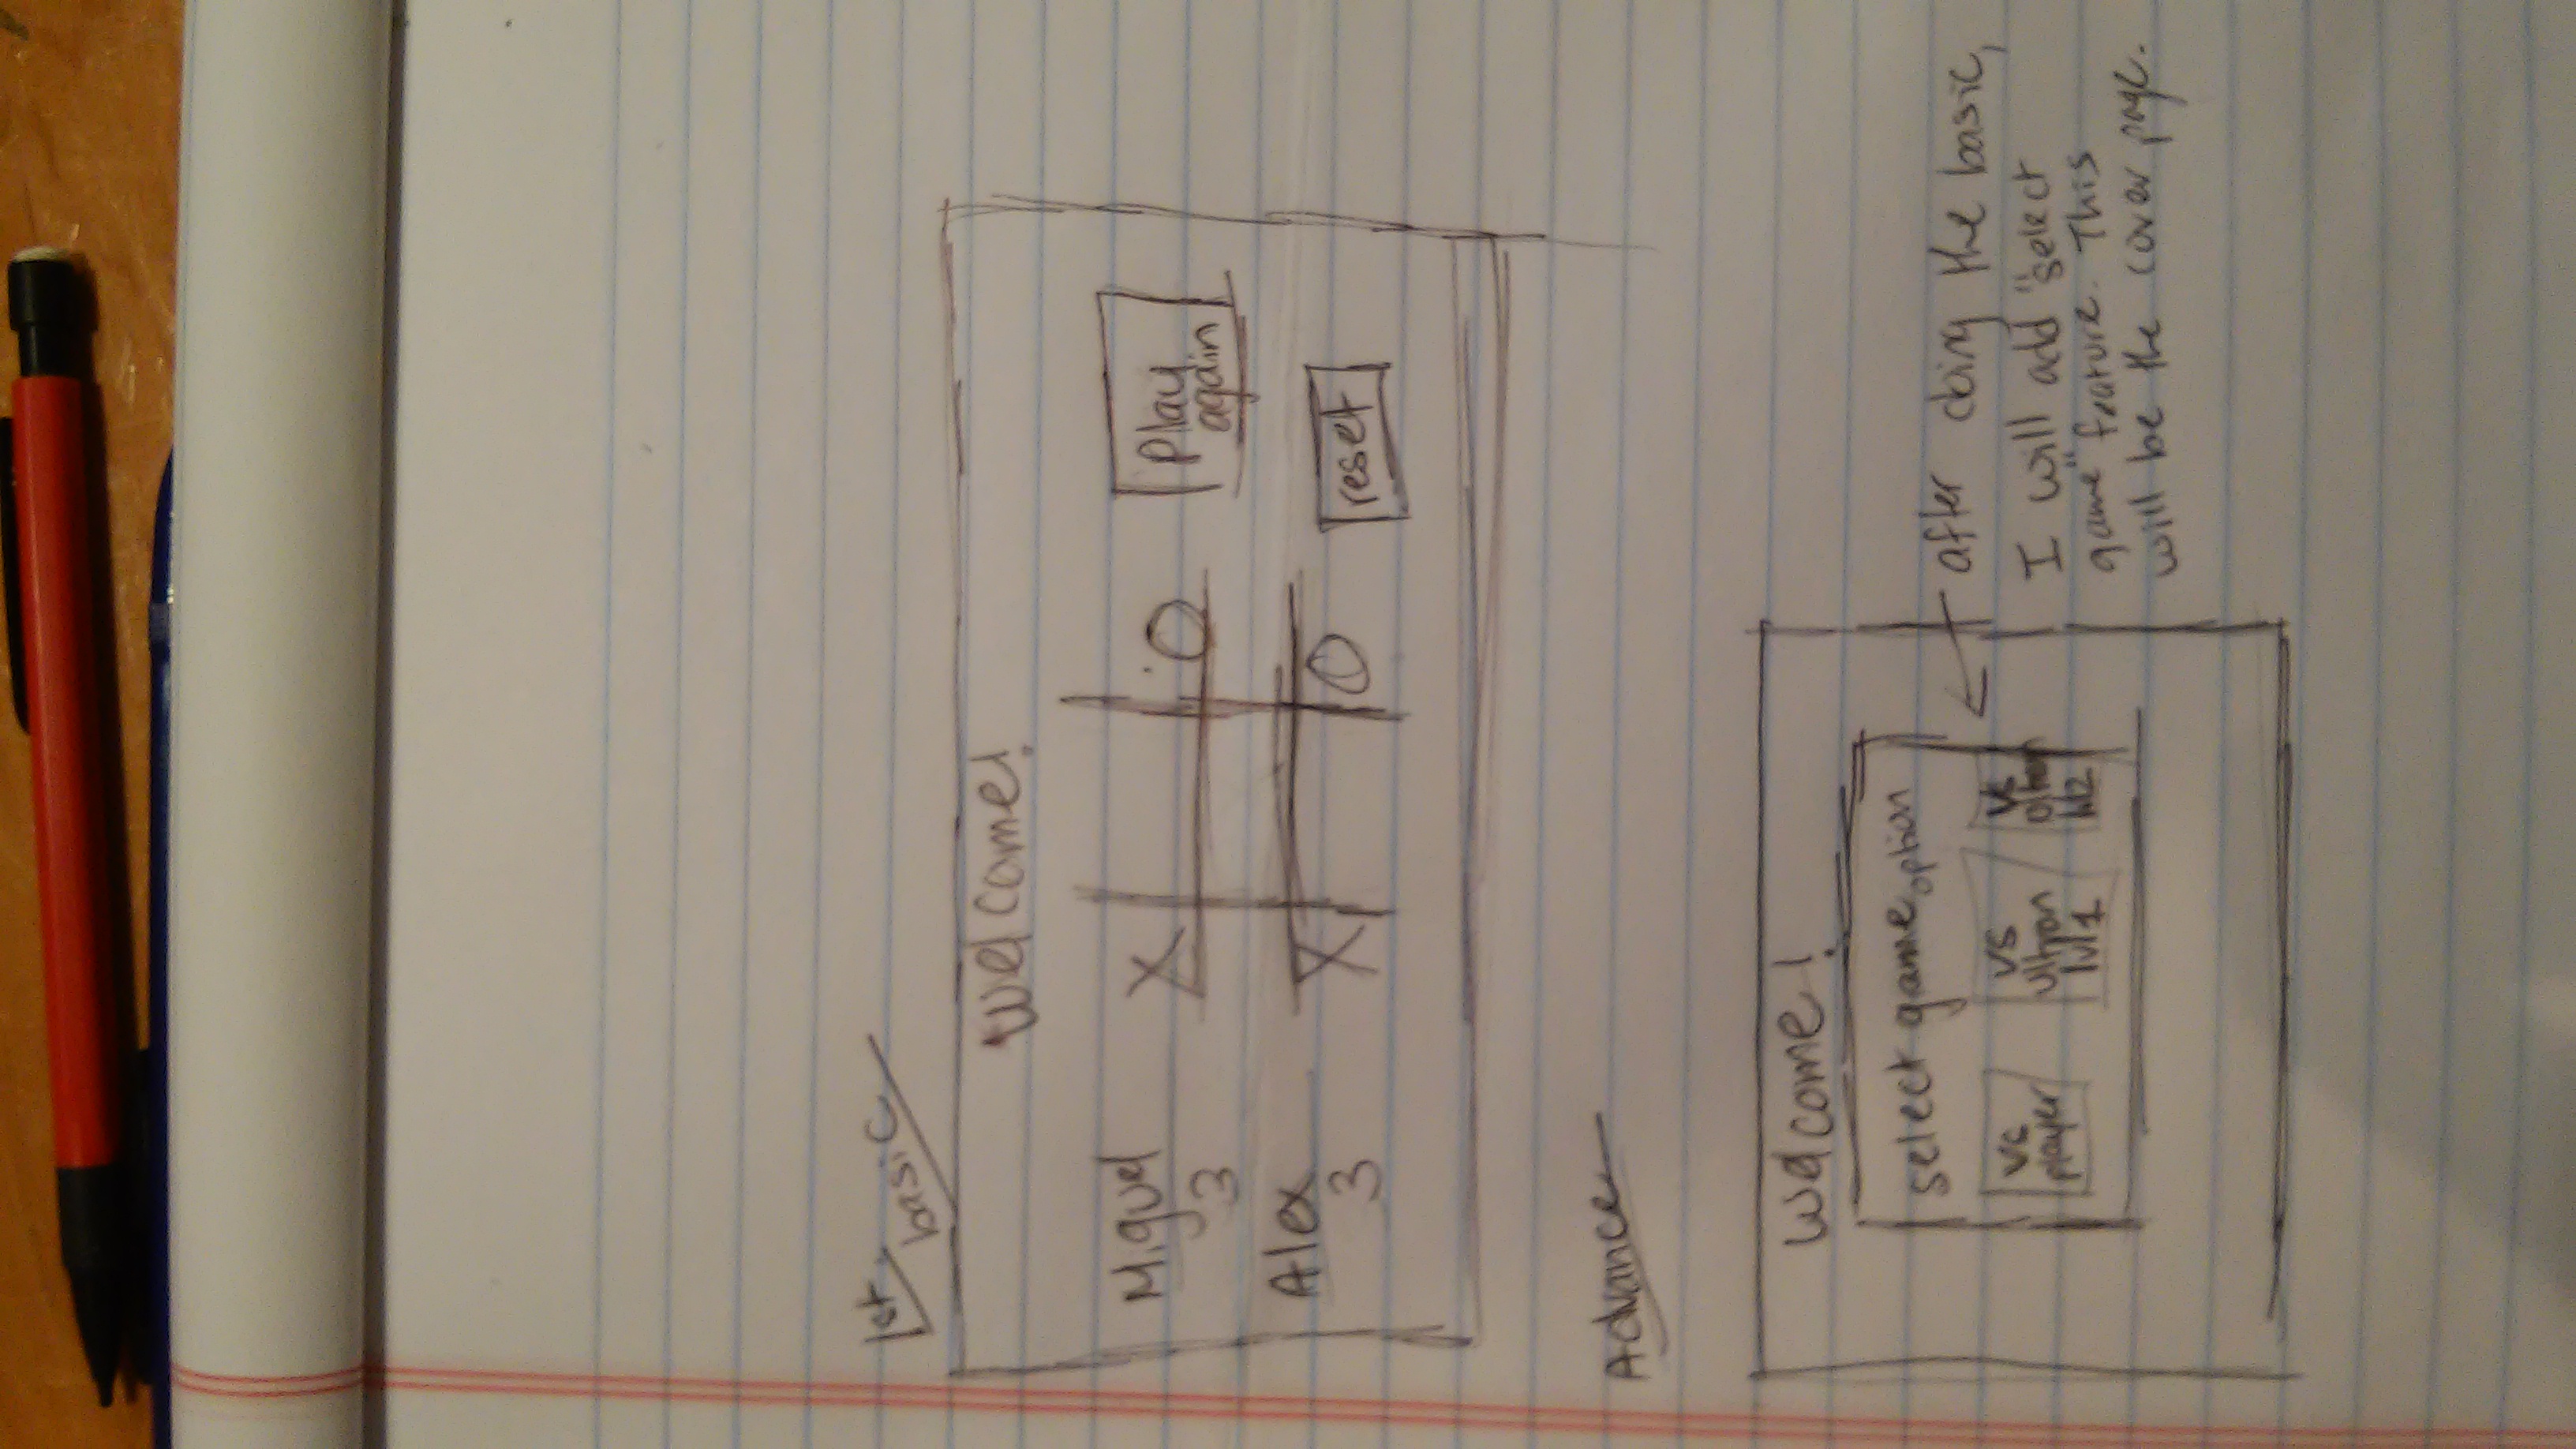 1st basic
Welcome!
Miguel
3
Alex
3
X O
X O
Play
again
reset
Advance
Welcome!
select game option
vs
player
vs
Ultron
lvl1
vs
Ultron
lvl2
after doing the basic,
I will add "select
game" feature. This
will be the cover page.